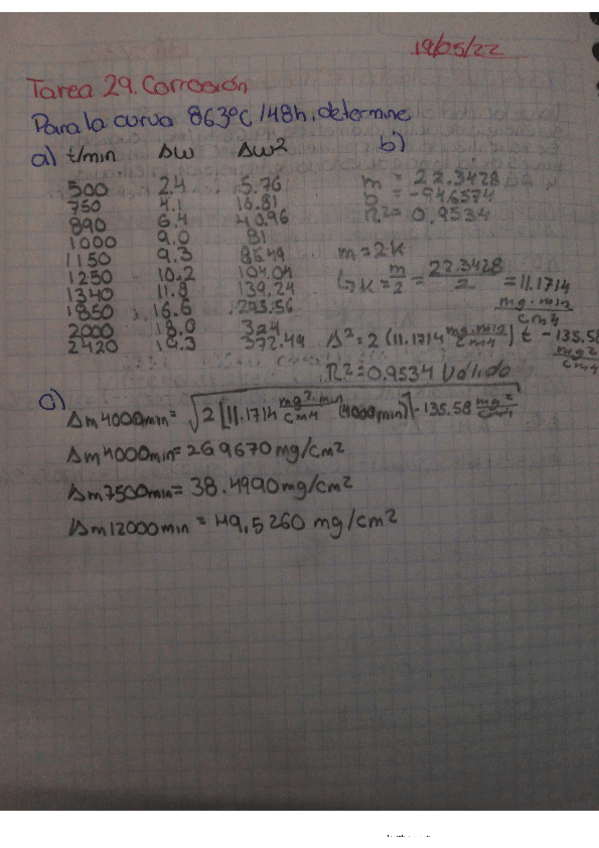 19/05/22
Tarea 29. Corrosión
Para la curva 863°C/48h, determine
a) t/min Δw Δw² b)
500 2.4 5.76
750 4.1 16.81
890 6.4 40.96
1000 9.0 81
1150 9.3 86.49
1250 10.2 104.04
1340 11.8 139.24
1850 16.6 .293.56
2000 18.0 324
2420 19.3 372.49
m = 22.3428
b = -946574
R²= 0.9534
m=2K
↳ K = m/2 = 22.3428/2 = 11.1714
mg·min/cm4
Δ²=2(11.1714 mg·min/cm4) t -135.58 mg²/cm4
R²=0.9534 Válido
c)
Δm4000min= √2[11.1714 mg²·min/cm4 (4000min)]-135.58 mg²/cm4
Δm4000min=269670 mg/cm²
Δm7500min= 38.4990mg/cm²
Δm12000min = 49,5260 mg/cm²